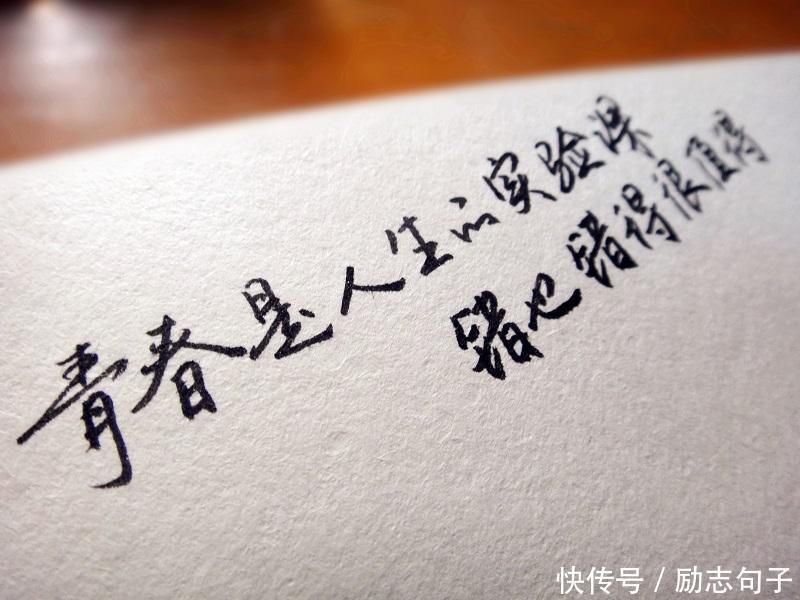 青春是人生的实验课
错也错得很值得
快传号 / 励志句子